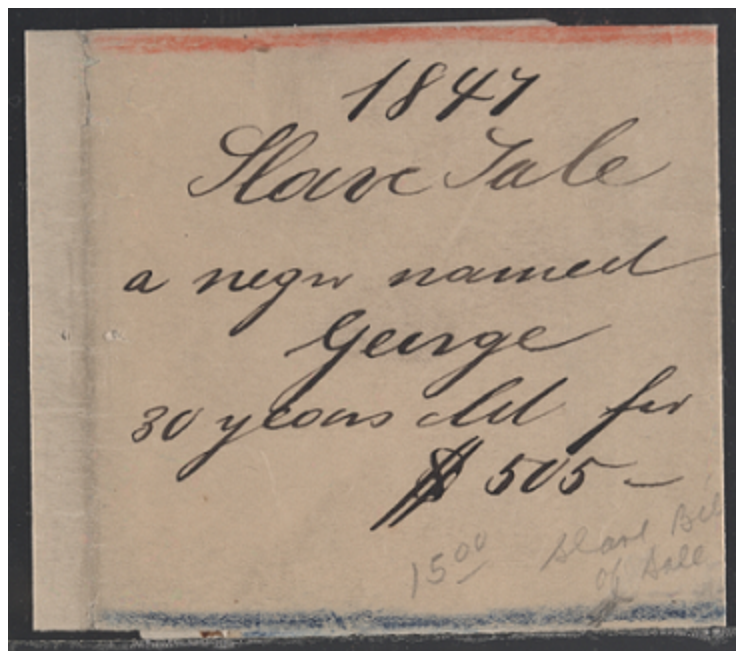 1847
Slave Sale
a negro named
George
30 years old for
$505 —
15 00 Slave Bill
of Sale